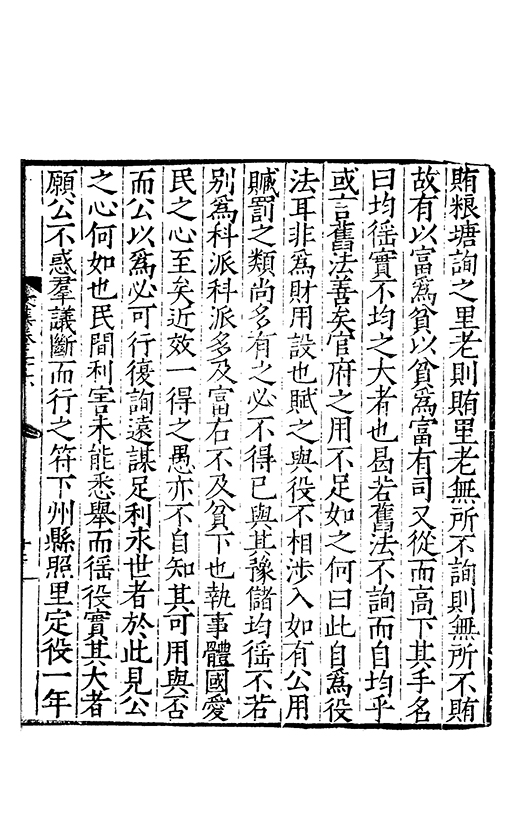 賄粮塘詢之里老則賄里老無所不詢則無所不賄
故有以富爲貧以貧爲富有司又從而高下其手名
曰均徭實不均之大者也曷若舊法不詢而自均乎
或言舊法善矣官府之用不足如之何曰此自爲役
法耳非爲財用設也賦之與役不相涉入如有公用
贓罰之類尚多有之必不得已與其豫儲均徭不若
别爲科派科派多及富右不及貧下也執事體國愛
民之心至矣近效一得之愚亦不自知其可用與否
而公以爲必可行復詢遠謀足利永世者於此見公
之心何如也民間利害未能悉舉而徭役實其大者
願公不惑羣議斷而行之符下州縣照里定役一年